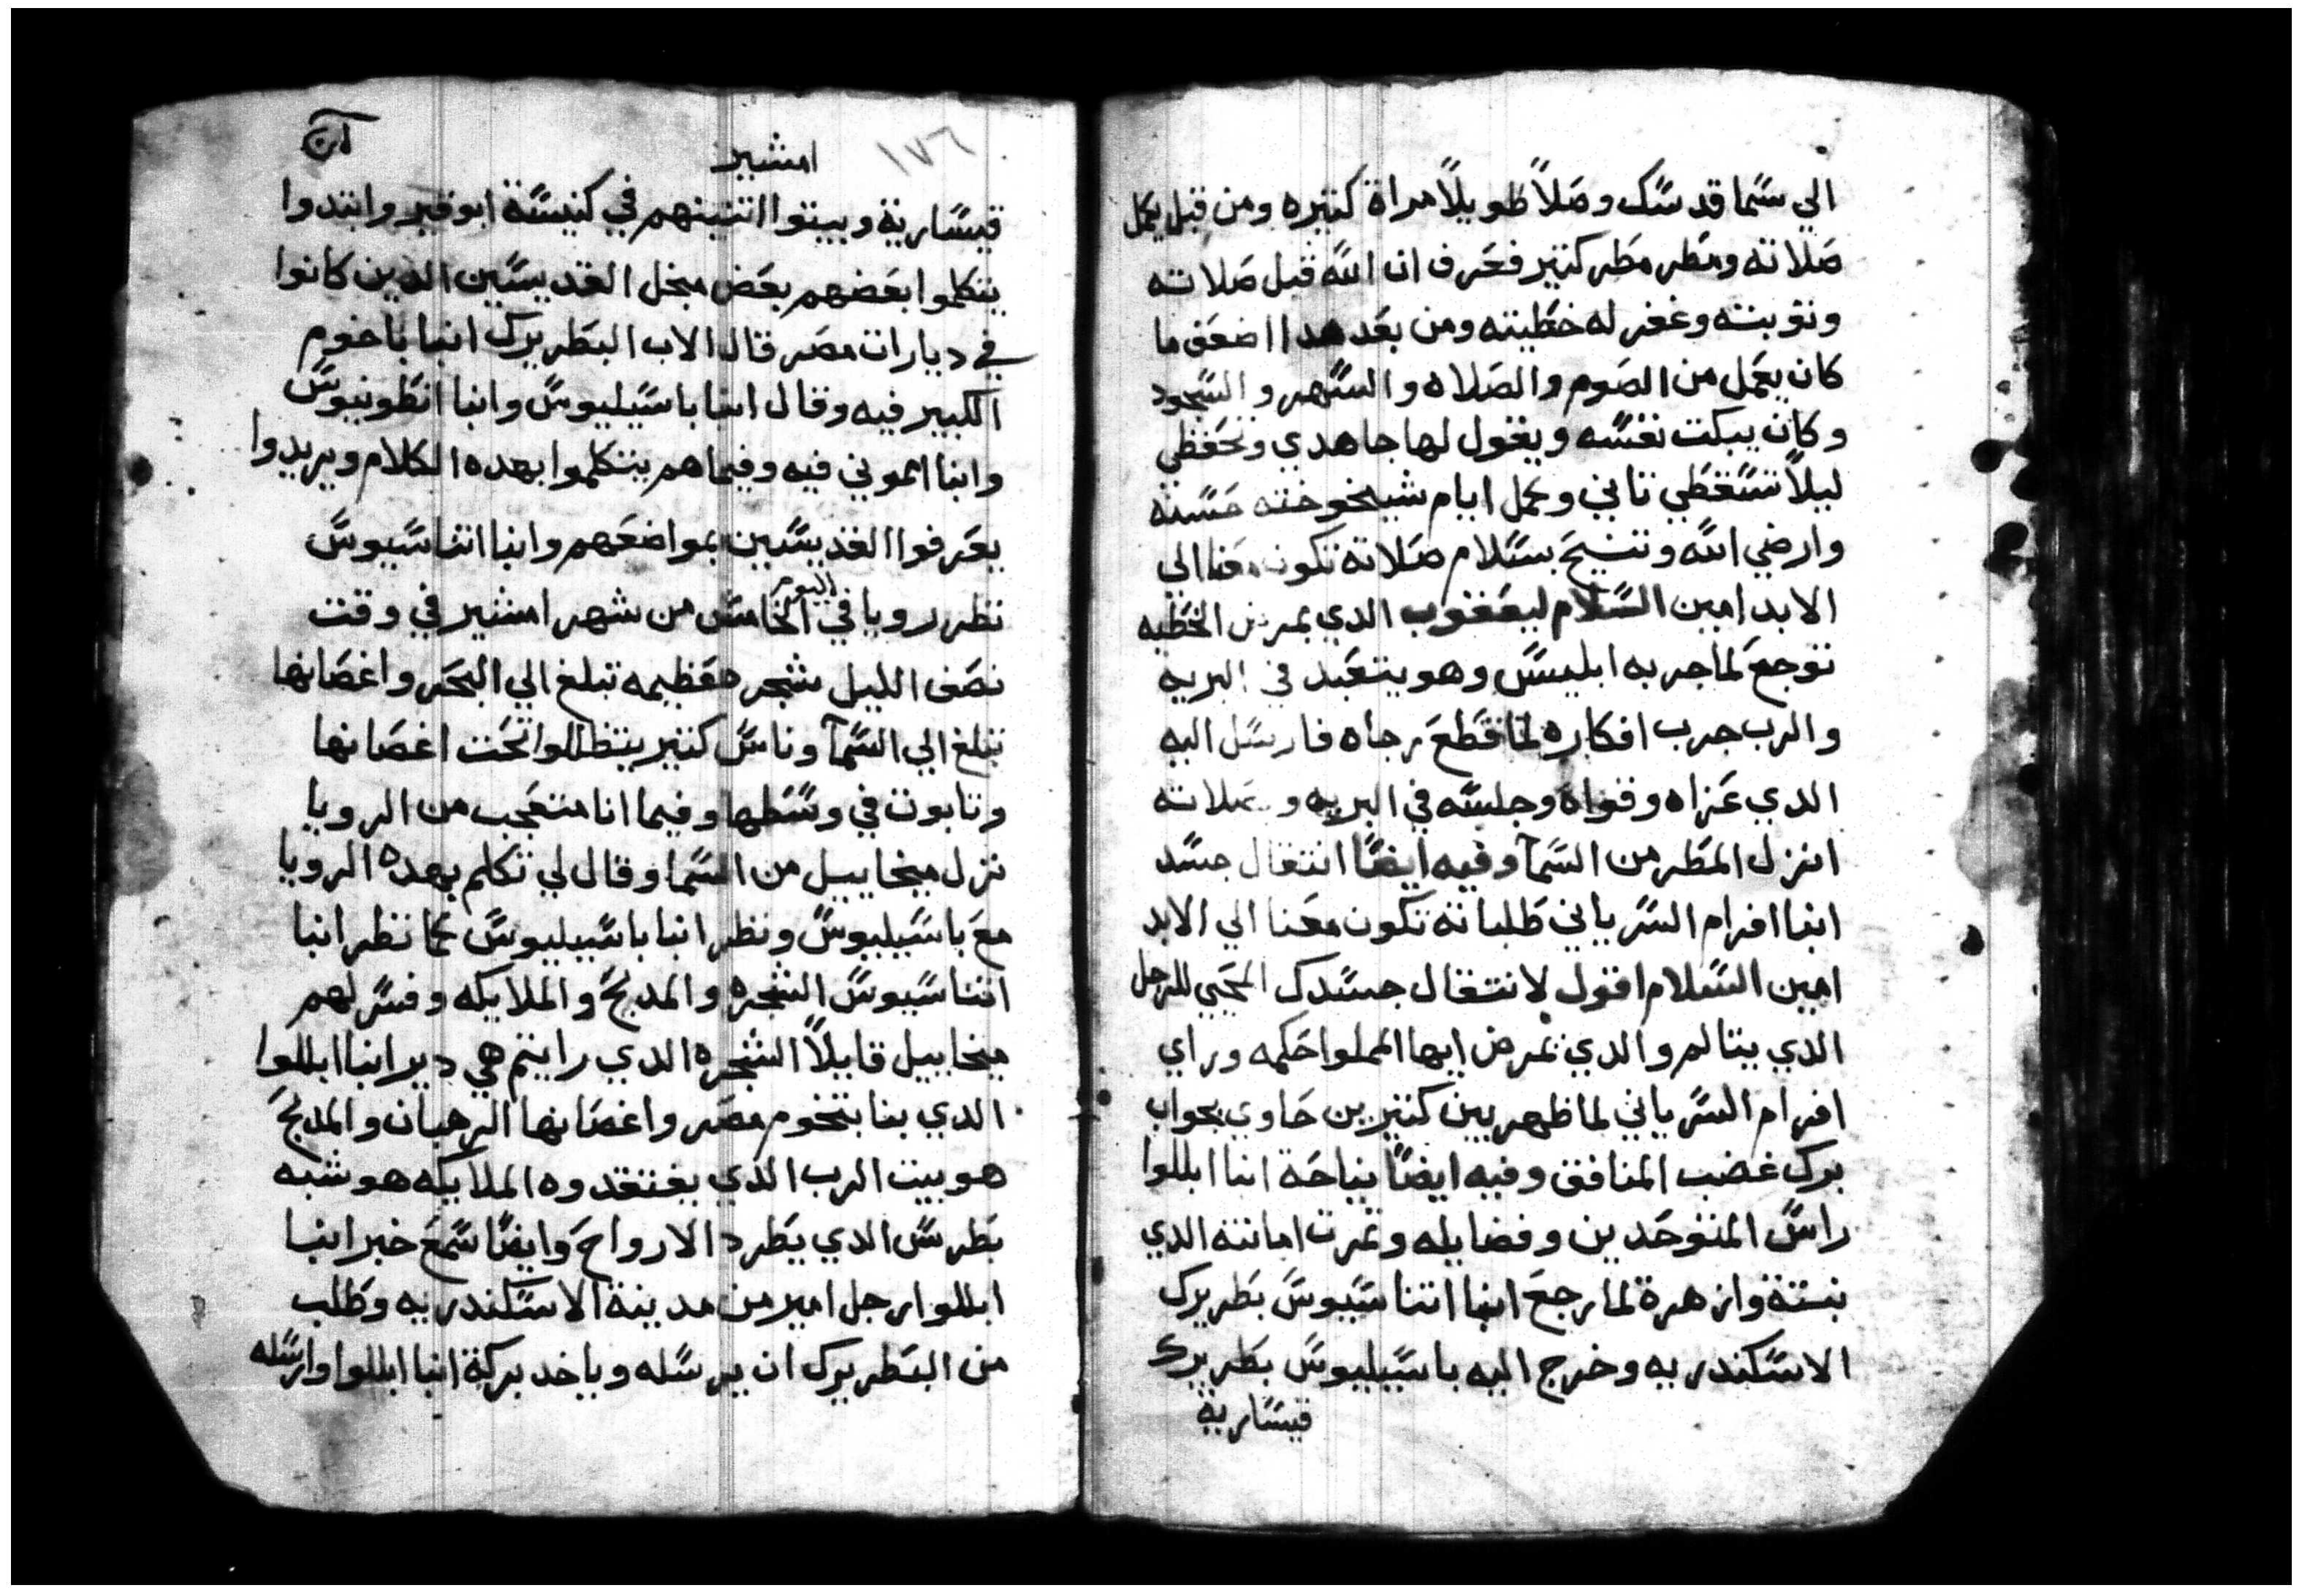 الي سما قدسك وصلاً طويلاً مراة كتيره ومن قبل يكمل
صلاته ومطر مطر كتير فعرف ان الله قبل صلاته
وتوبته وغفر له خطيته ومن بعد هدا اضعف ما
كان يعمل من الصوم والصلاه والسهر والسجود
وكان يبكت نفسه ويقول لها جاهدي وتحفظي
ليلاً تسقطي تاني وكمل ايام شيخوخته حسنه
وارضي الله وتنيح بسلام صلاته تكون معنا الي
الابد امين السلام ليعقوب الدي بمرض الخطيه
توجع لما جربه ابليس وهو يتعبد في البريه
والرب جرب افكاره لما قطع رجاه فارسل اليه
الدي عزاه وقواه وجلسه في البريه وبصلاته
انزل المطر من السمآ وفيه ايضاً انتقال جسد
انبا افرام السرياني طلباته تكون معنا الي الابد
امين السلام اقول لانتقال جسدك المحيي للرجل
الدي يتالم والدي تمرض ايها المملوا حكمه وراي
افرام السرياني لما ظهر بين كتيرين حاوي بجواب
برك غضب المنافق وفيه ايضاً نياحة انبا ابللوا
راس المتوحدين وفضايله وتمرت امانته الدي
نبتة وازهرة لما رجع انبا اتناسيوس بطريرك
الاسكندريه وخرج اليه باسيليوس بطريرك
قيسارية
١٧٦
امشير
قيسارية وبيتوا اتنينهم في كنيسة ابو قير وابتدوا
يتكلموا بعضهم بعض مبخل القديسين الدين كانوا
في ديارات مصر قال الاب البطريرك انبا باخوم
الكبير فيه وقال انبا باسيليوس وانبا انطونيوس
وانبا اموني فيه وفيما هم يتكلموا بهده الكلام ويريدوا
يعرفوا القديسين بمواضعهم وانبا اتناسيوس
نظر رويا في اليوم الخامس من شهر امشير في وقت
نصف الليل شجره عظيمه تبلغ الي البحر واغصانها
تبلغ الي السمآ وناس كتير يتظللوا تحت اغصانها
وتابوت في وسطها وفيما انا متعجب من الرويا
نزل ميخاييل من السما وقال لي تكلم بهده الرويا
مع باسيليوس ونظر انبا باسيليوس كما نظر انبا
اتناسيوس الشجره والمدبح والملايكه وفسر لهم
ميخاييل قايلاً الشجره الدي رايتم هي دير انبا ابللوا
الدي بنا بتخوم مصر واغصانها الرهبان والمدبح
هو بيت الرب الدي يفتقدوه الملايكه هو شبه
بطرس الدي يطرد الارواح وايضاً سمع خبر انبا
ابللوا رجل امير من مدينة الاسكندريه وطلب
من البطريرك ان يرسله وياخد بركة انبا ابللوا وارسله